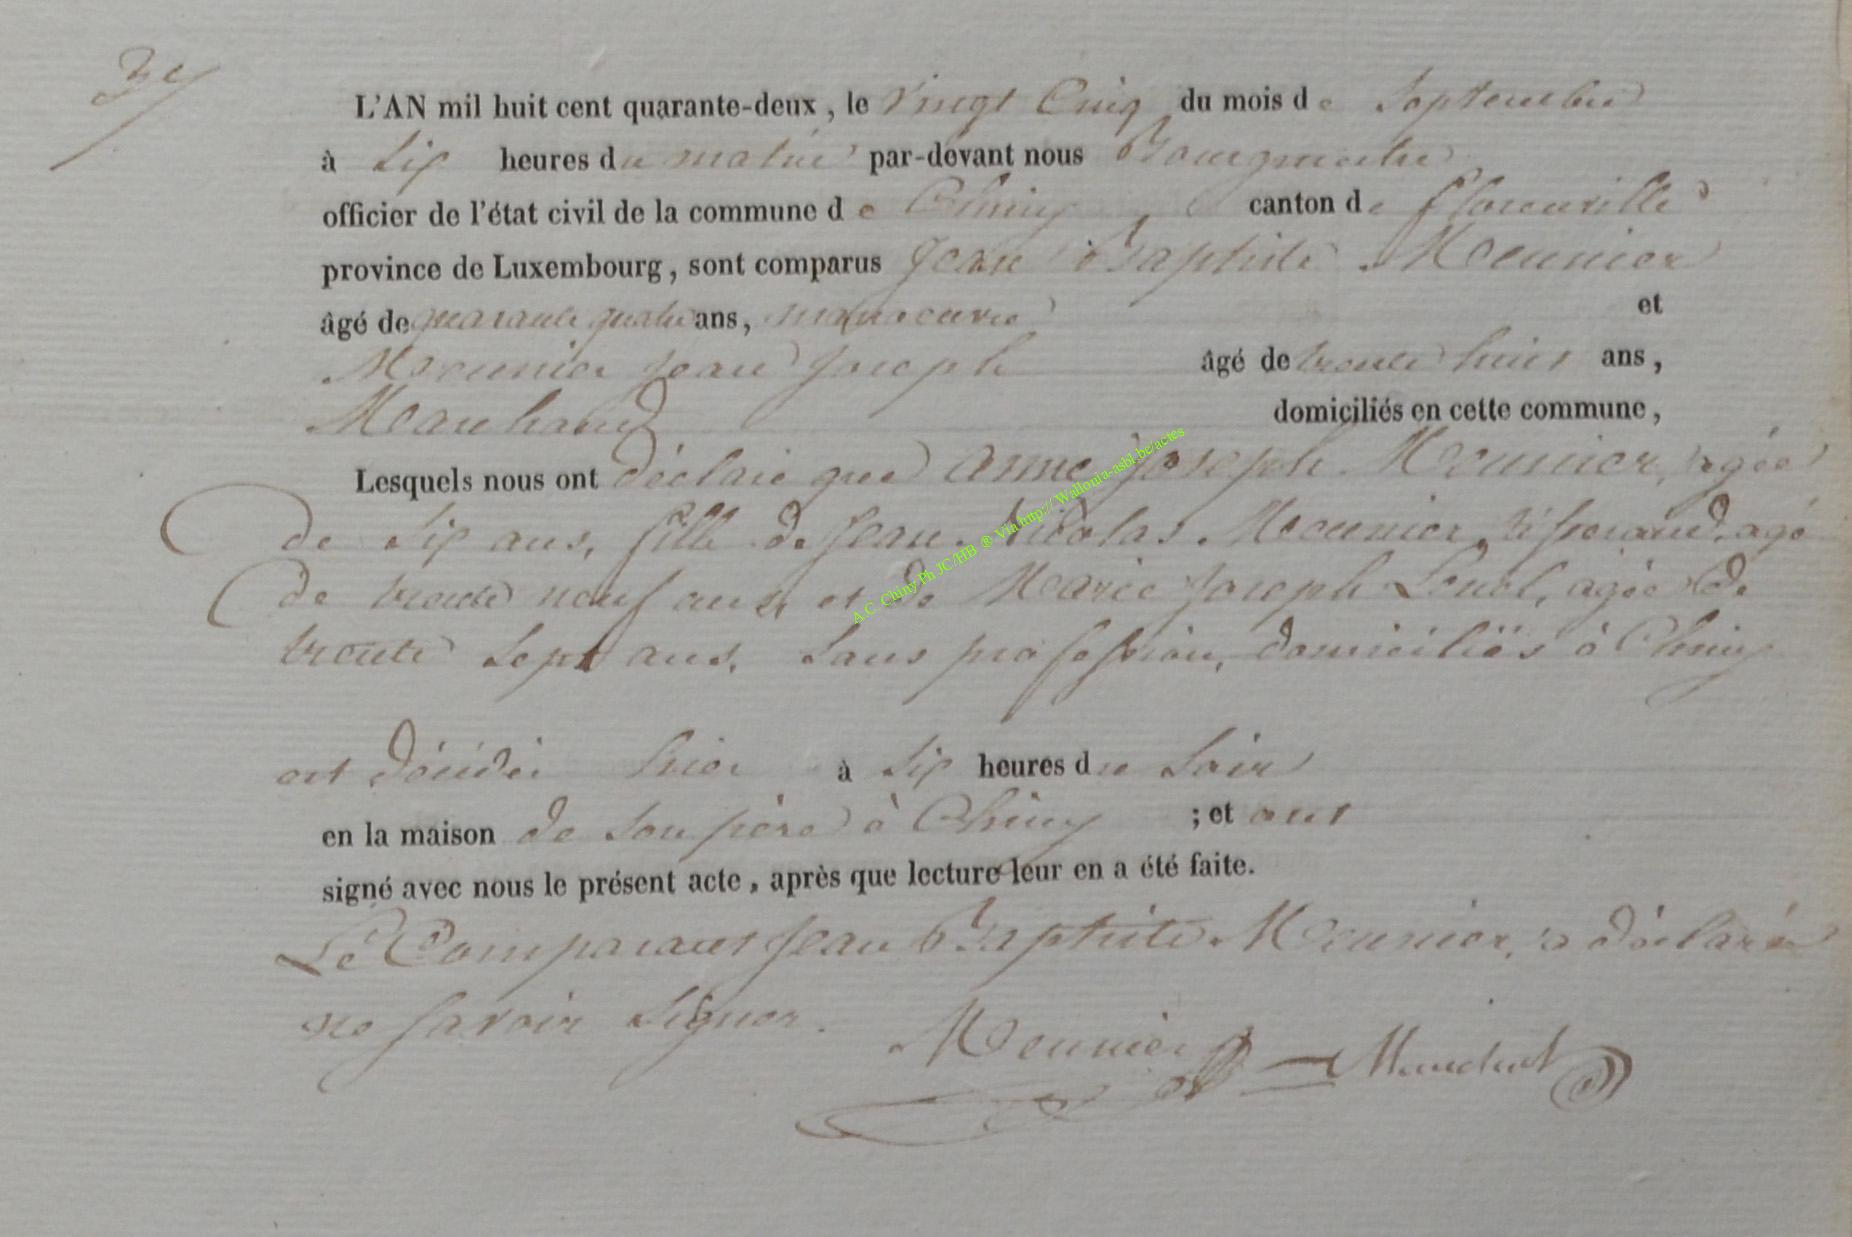 3e
L'AN mil huit cent quarante-deux, le Vingt Cinq du mois de Septembre
à Six heures du matin par-devant nous Bourgmestre
officier de l'état civil de la commune de Chiny, canton de florenville
province de Luxembourg, sont comparus Jean Baptiste Meunier
âgé de quarante quatre ans, manoeuvre et
Meunier Jean Joseph âgé de trente huit ans,
Marchand domiciliés en cette commune,
Lesquels nous ont déclaré que Anne Joseph Meunier, agée
de Six ans, fille de Jean Nicolas Meunier, tisserand, agé
de trente neuf ans, et de Marie Joseph Lenel, agée de
trente Sept ans, Sans profession, domiciliés à Chiny
est décédée hier à Six heures du Soir
en la maison de Son père à Chiny ; et ont
signé avec nous le présent acte, après que lecture leur en a été faite.
Le Comparant Jean Baptiste Meunier, a déclaré
ne savoir Signer. Meunier
A.C. Chiny Ph JC/HB ® Via http://Wallonia-asbl.be/actes